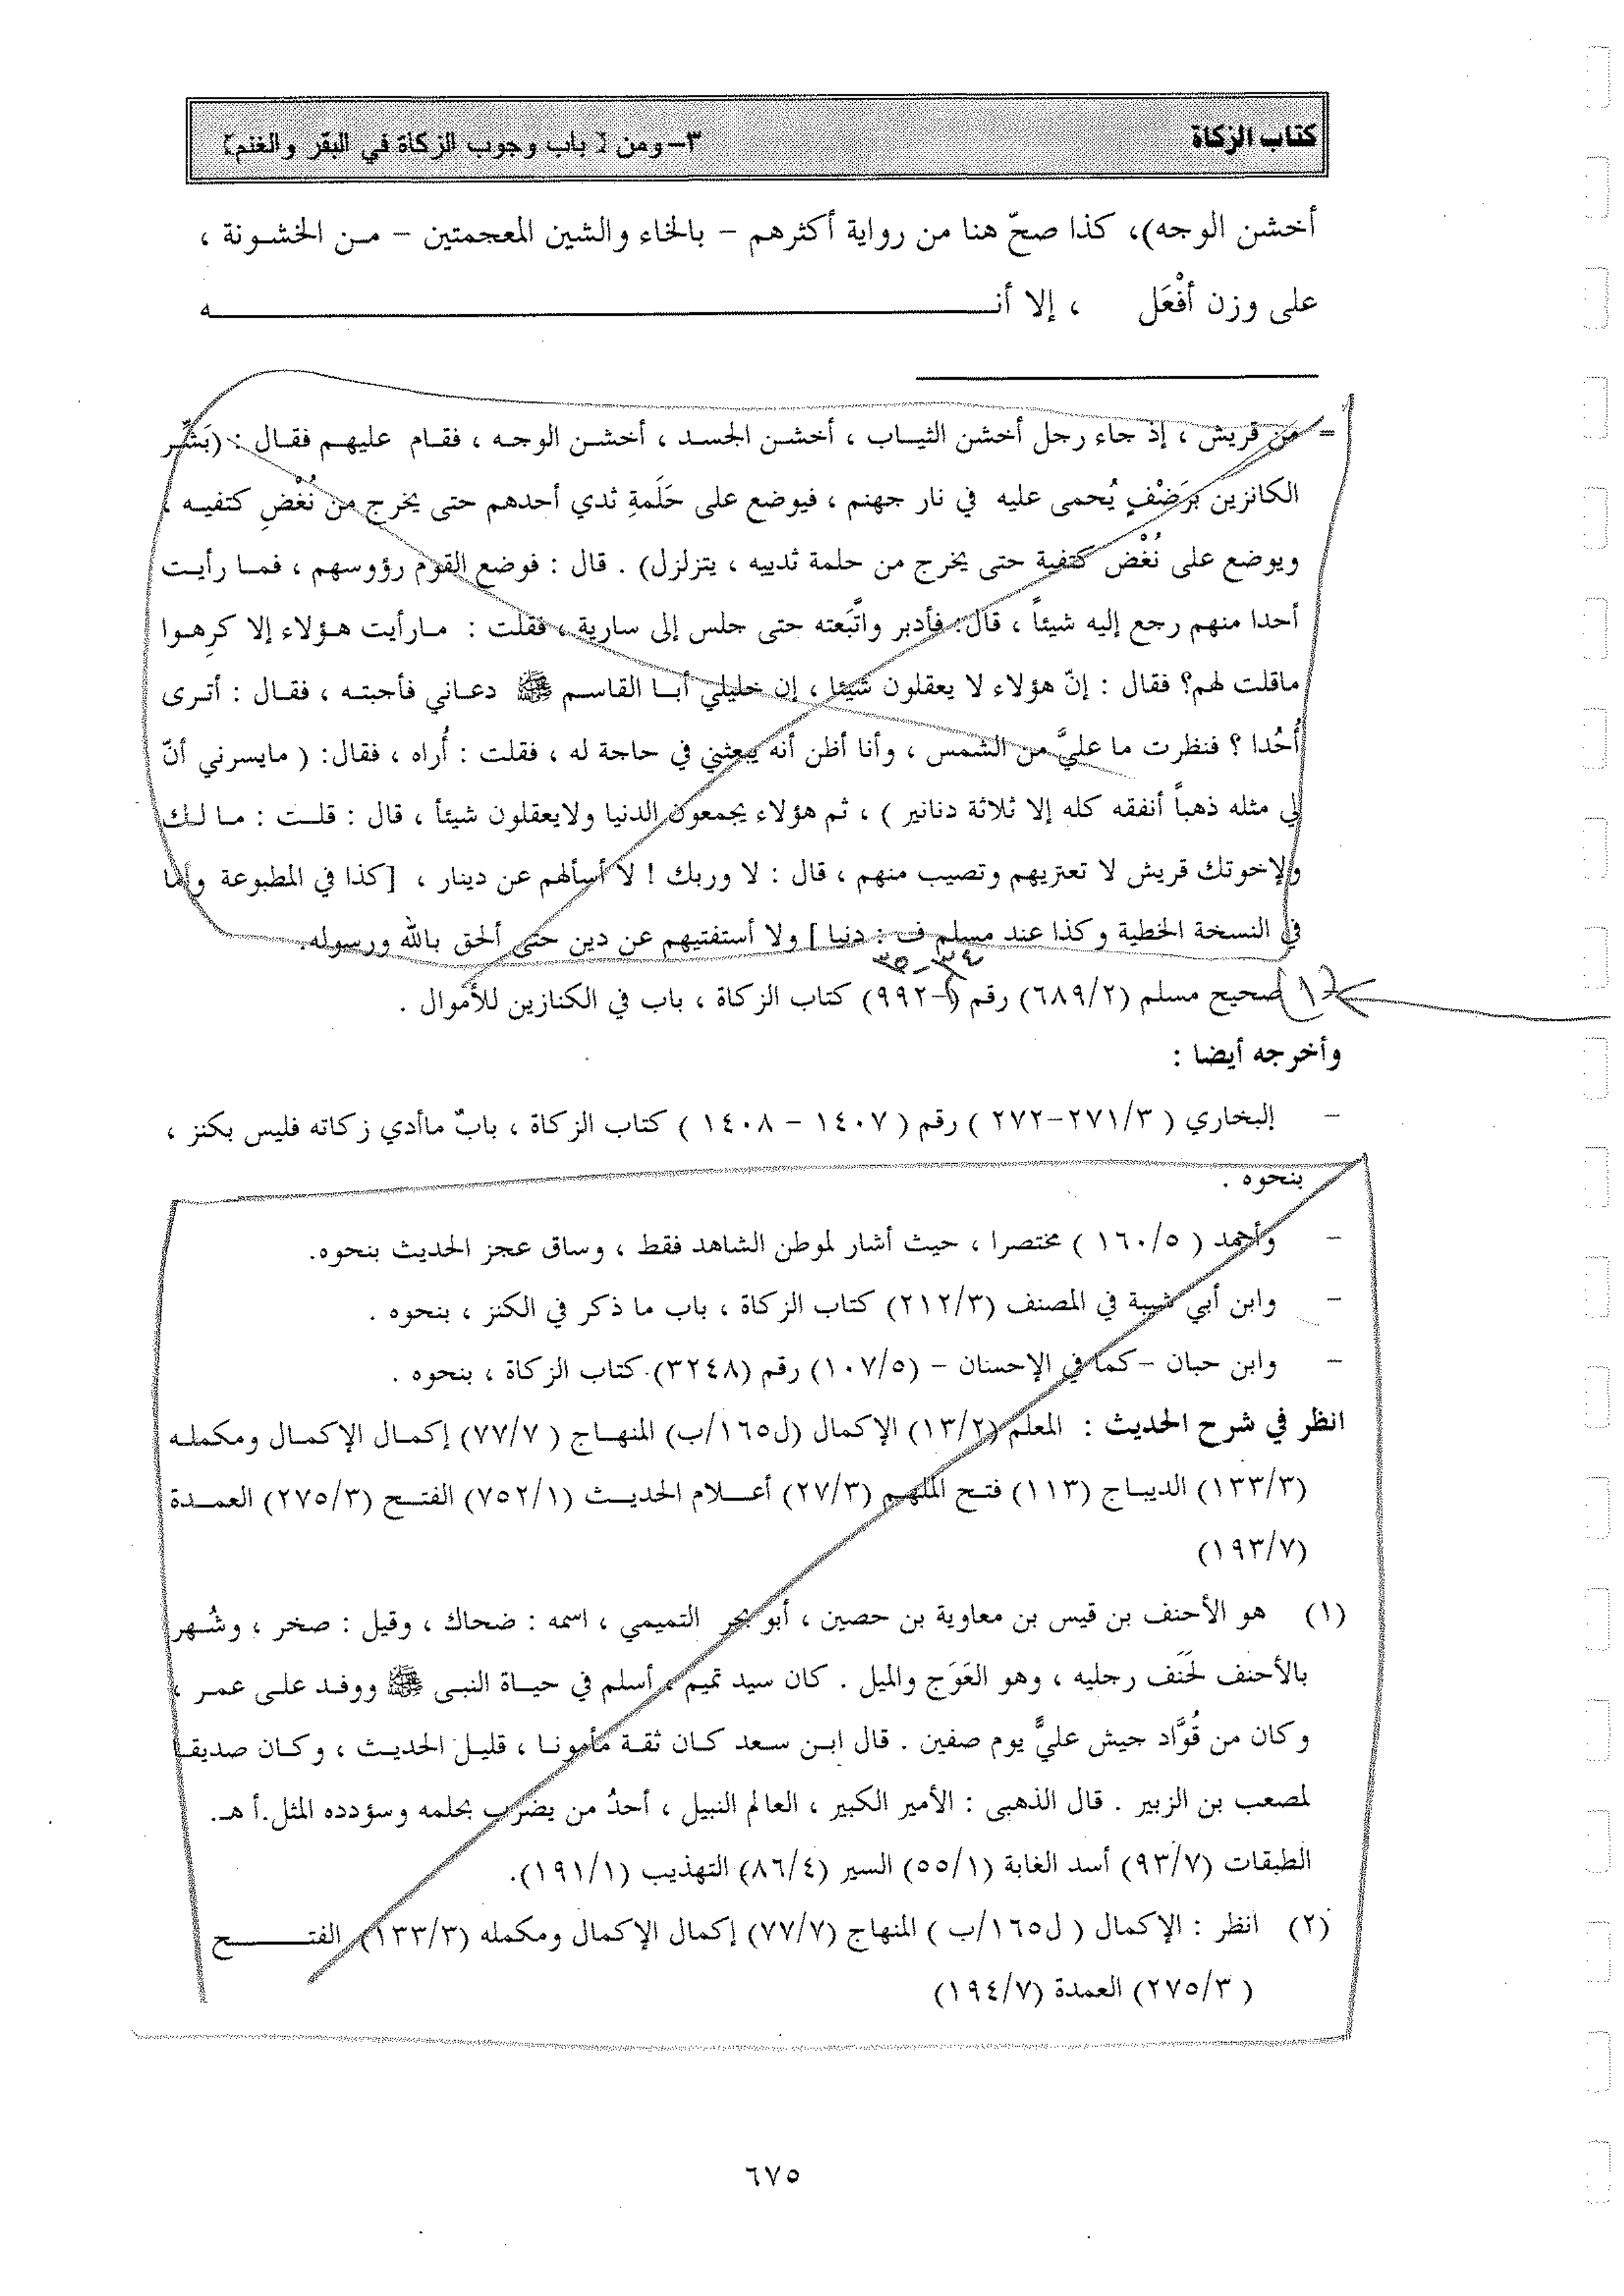 كتاب الزكاة
٣-ومن [ باب وجوب الزكاة في البقر والغنم]
أخشن الوجه)، كذا صحّ هنا من رواية أكثرهم - بالخاء والشين المعجمتين - مـن الخشـونة ،
على وزن أفْعَل ، إلا أنـــــــــــــه
= من قريش ، إذ جاء رجل أخشن الثيـاب ، أخشـن الجسـد ، أخشـن الوجـه ، فقـام عليهـم فقـال : (بَشِّـر
الكانزين برَضْفٍ يُحمى عليه في نار جهنم ، فيوضع على حَلَمةِ ثدي أحدهم حتى يخرج من نُغْضِ كتفيـه ،
ويوضع على نُغْض كتفية حتى يخرج من حلمة ثدييه ، يتزلزل) . قال : فوضع القوم رؤوسهم ، فمـا رأيـت
أحدا منهم رجع إليه شيئاً ، قال: فأدبر واتَّبَعته حتى جلس إلى سارية ، فقلت : مـارأيت هـؤلاء إلا كرِهـوا
ماقلت لهم؟ فقال : إنّ هؤلاء لا يعقلون شيئا ، إن خليلي أبـا القاسـم ﷺ دعـاني فأجبتـه ، فقـال : أتـرى
أُحُدا ؟ فنظرت ما عليَّ من الشمس ، وأنا أظن أنه يبعثني في حاجة له ، فقلت : أُراه ، فقال: ( مايسرني أنّ
لي مثله ذهباً أنفقه كله إلا ثلاثة دنانير ) ، ثم هؤلاء يجمعون الدنيا ولايعقلون شيئاً ، قال : قلـت : مـا لـك
ولإخوتك قريش لا تعتريهم وتصيب منهم ، قال : لا وربك ! لا أسألهم عن دينار ، [كذا في المطبوعة وأما
في النسخة الخطية وكذا عند مسلم ف : دنيا ] ولا أستفتيهم عن دين حتى ألحق بالله ورسوله.
٣٤-٣٥
(١) صحيح مسلم (٦٨٩/٢) رقم (-٩٩٢) كتاب الزكاة ، باب في الكنازين للأموال .
وأخرجه أيضا :
- البخاري ( ٢٧١/٣-٢٧٢ ) رقم ( ١٤٠٧ - ١٤٠٨ ) كتاب الزكاة ، بابٌ ماأدي زكاته فليس بكنز ،
بنحوه .
- وأحمد ( ١٦٠/٥ ) مختصرا ، حيث أشار لموطن الشاهد فقط ، وساق عجز الحديث بنحوه.
- وابن أبي شيبة في المصنف (٢١٢/٣) كتاب الزكاة ، باب ما ذكر في الكنز ، بنحوه .
- وابن حبان -كما في الإحسان - (١٠٧/٥) رقم (٣٢٤٨) كتاب الزكاة ، بنحوه .
انظر في شرح الحديث : المعلم (١٣/٢) الإكمال (ل١٦٥/ب) المنهـاج ( ٧٧/٧) إكمـال الإكمـال ومكملـه
(١٣٣/٣) الديبـاج (١١٣) فتـح الملهـم (٢٧/٣) أعـلام الحديـث (٧٥٢/١) الفتـح (٢٧٥/٣) العمـدة
(١٩٣/٧)
(١) هو الأحنف بن قيس بن معاوية بن حصين ، أبو بحر التميمي ، اسمه : ضحاك ، وقيل : صخر ، وشُـهر
بالأحنف لحَنَف رجليه ، وهو العَوَج والميل . كان سيد تميم ، أسلم في حيـاة النبـى ﷺ ووفـد علـى عمـر ،
وكان من قُوَّاد جيش عليٍّ يوم صفين . قال ابـن سـعد كـان ثقـة مأمونـا ، قليـل الحديـث ، وكـان صديقـا
لمصعب بن الزبير . قال الذهبى : الأمير الكبير ، العالم النبيل ، أحدُ من يضرب بحلمه وسؤدده المثل.أ هـ.
الطبقات (٩٣/٧) أسد الغابة (٥٥/١) السير (٨٦/٤) التهذيب (١٩١/١).
(٢) انظر : الإكمال ( ل١٦٥/ب ) المنهاج (٧٧/٧) إكمال الإكمال ومكمله (١٣٣/٣) الفتـــــح
( ٢٧٥/٣) العمدة (١٩٤/٧)
٦٧٥